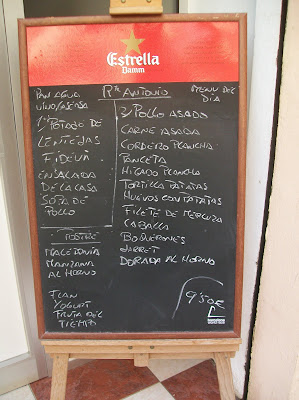 Estrella
Damm
PAN AGUA
VINO/CASERA
Rte ANTONIO
MENU DEL
DIA
1º/ POTAJE DE
LENTEJAS
FIDEUA
ENSALADA
DE LA CASA
SOPA DE
POLLO
POSTRE
MACEDONIA
MANZANA
AL HORNO
FLAN
YOGURT
FRUTA DEL
TIEMPO
2/ POLLO ASADO
CARNE ASADA
CORDERO PLANCHA
PANCETA
HIGADO PLANCHA
TORTILLA PATATAS
HUEVOS CON PATATAS
FILETE DE MERLUZA
CABALLA
BOQUERONES
JARRET
DORADA AL HORNO
9'50€